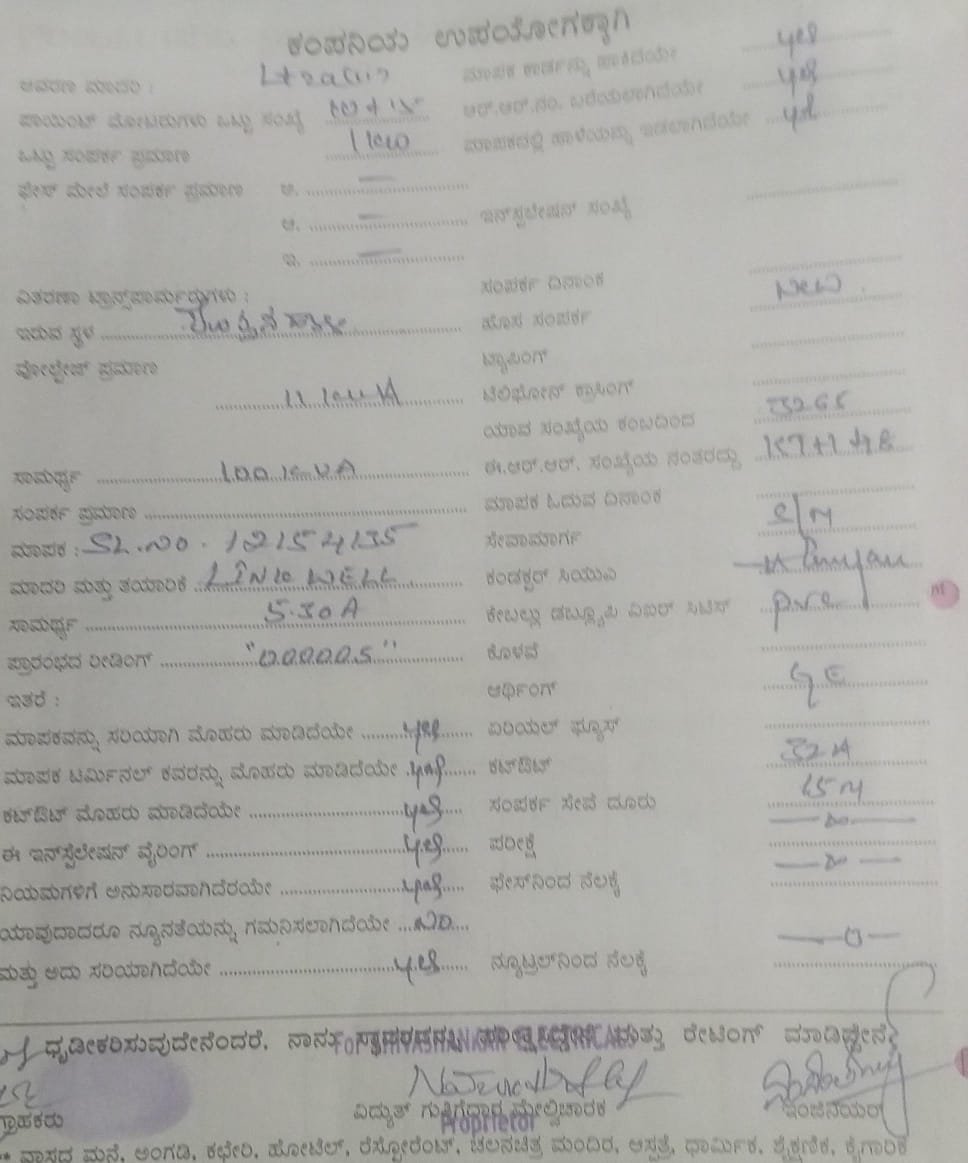 ಕಂಪನಿಯ ಉಪಯೋಗಕ್ಕಾಗಿ
ಆವರಣ ಮಾದರಿ : ಮಾಪಕ ಕಾರ್ಡನ್ನು ಹಾಕಿದೆಯೇ yes
ಪಾಯಿಂಟ್ ಮೋಟರುಗಳು ಒಟ್ಟು ಸಂಖ್ಯೆ ಆರ್.ಆರ್.ನಂ. ಬರೆಯಲಾಗಿದೆಯೇ yes
ಒಟ್ಟು ಸಂಪರ್ಕ ಪ್ರಮಾಣ 1 ಮಾಪಕದಲ್ಲಿ ಹಾಳೆಯನ್ನು ಇಡಲಾಗಿದೆಯೇ yes
ಫೇಸ್ ಮೇಲೆ ಸಂಪರ್ಕ ಪ್ರಮಾಣ ಅ.
ಆ. ಇನ್‌ಸ್ಟಲೇಷನ್ ಸಂಖ್ಯೆ
ಇ.
ವಿತರಣಾ ಟ್ರಾನ್ಸ್‌ಫಾರ್ಮರುಗಳು : ಸಂಪರ್ಕ ದಿನಾಂಕ
ಇರುವ ಸ್ಥಳ ಹೊಸ ಸಂಪರ್ಕ New
ವೋಲ್ಟೇಜ್ ಪ್ರಮಾಣ ಟ್ಯಾಪಿಂಗ್
11 ಟೆಲಿಫೋನ್ ಕ್ರಾಸಿಂಗ್
ಯಾವ ಸಂಖ್ಯೆಯ ಕಂಬದಿಂದ
ಸಾಮರ್ಥ್ಯ 100 KVA ಈ.ಆರ್.ಆರ್. ಸಂಖ್ಯೆಯ ನಂತರದ್ದು
ಸಂಪರ್ಕ ಪ್ರಮಾಣ ಮಾಪಕ ಓದುವ ದಿನಾಂಕ
ಮಾಪಕ : SL.NO. 12154135 ಸೇವಾಮಾರ್ಗ
ಮಾದರಿ ಮತ್ತು ತಯಾರಿಕೆ LINKWELL ಕಂಡಕ್ಟರ್ ಸಿಯುಎ
ಸಾಮರ್ಥ್ಯ 5-30A ಕೇಬಲ್ಲು ಡಬ್ಲ್ಯೂಪಿ ಏಐಆರ್ ಸಿಟಿಸ್ pvc
ಪ್ರಾರಂಭದ ರೀಡಿಂಗ್ "00000.5" ಕೊಳವೆ
ಇತರೆ : ಆರ್ಥಿಂಗ್
ಮಾಪಕವನ್ನು ಸರಿಯಾಗಿ ಮೊಹರು ಮಾಡಿದೆಯೇ yes ಏರಿಯಲ್ ಫ್ಯೂಸ್
ಮಾಪಕ ಟರ್ಮಿನಲ್ ಕವರನ್ನು ಮೊಹರು ಮಾಡಿದೆಯೇ yes ಕಟ್‌ಔಟ್ 32A
ಕಟ್‌ಔಟ್ ಮೊಹರು ಮಾಡಿದೆಯೇ yes ಸಂಪರ್ಕ ಸೇವೆ ದೂರು 15M
ಈ ಇನ್‌ಸ್ಟೆಲೇಷನ್ ವೈರಿಂಗ್ yes ಪರೀಕ್ಷೆ
ನಿಯಮಗಳಿಗೆ ಅನುಸಾರವಾಗಿದೆರಯೇ yes ಫೇಸ್‌ನಿಂದ ನೆಲಕ್ಕೆ
ಯಾವುದಾದರೂ ನ್ಯೂನತೆಯನ್ನು ಗಮನಿಸಲಾಗಿದೆಯೇ NO
ಮತ್ತು ಅದು ಸರಿಯಾಗಿದೆಯೇ yes ನ್ಯೂಟ್ರಲ್‌ನಿಂದ ನೆಲಕ್ಕೆ
ಧೃಡೀಕರಿಸುವುದೇನೆಂದರೆ, ನಾನು ಮತ್ತು ರೇಟಿಂಗ್ ಮಾಡಿದ್ದೇನೆ
ಗ್ರಾಹಕರು ವಿದ್ಯುತ್ ಗುತ್ತಿಗೆದಾರ ಮೇಲ್ವಿಚಾರಕ ಇಂಜಿನಿಯರ್
Proprietor
* ವಾಸದ ಮನೆ, ಅಂಗಡಿ, ಕಛೇರಿ, ಹೋಟೆಲ್, ರೆಸ್ಟೋರೆಂಟ್, ಚಲನಚಿತ್ರ ಮಂದಿರ, ಆಸ್ಪತ್ರೆ, ಧಾರ್ಮಿಕ, ಶೈಕ್ಷಣಿಕ, ಕೈಗಾರಿಕೆ